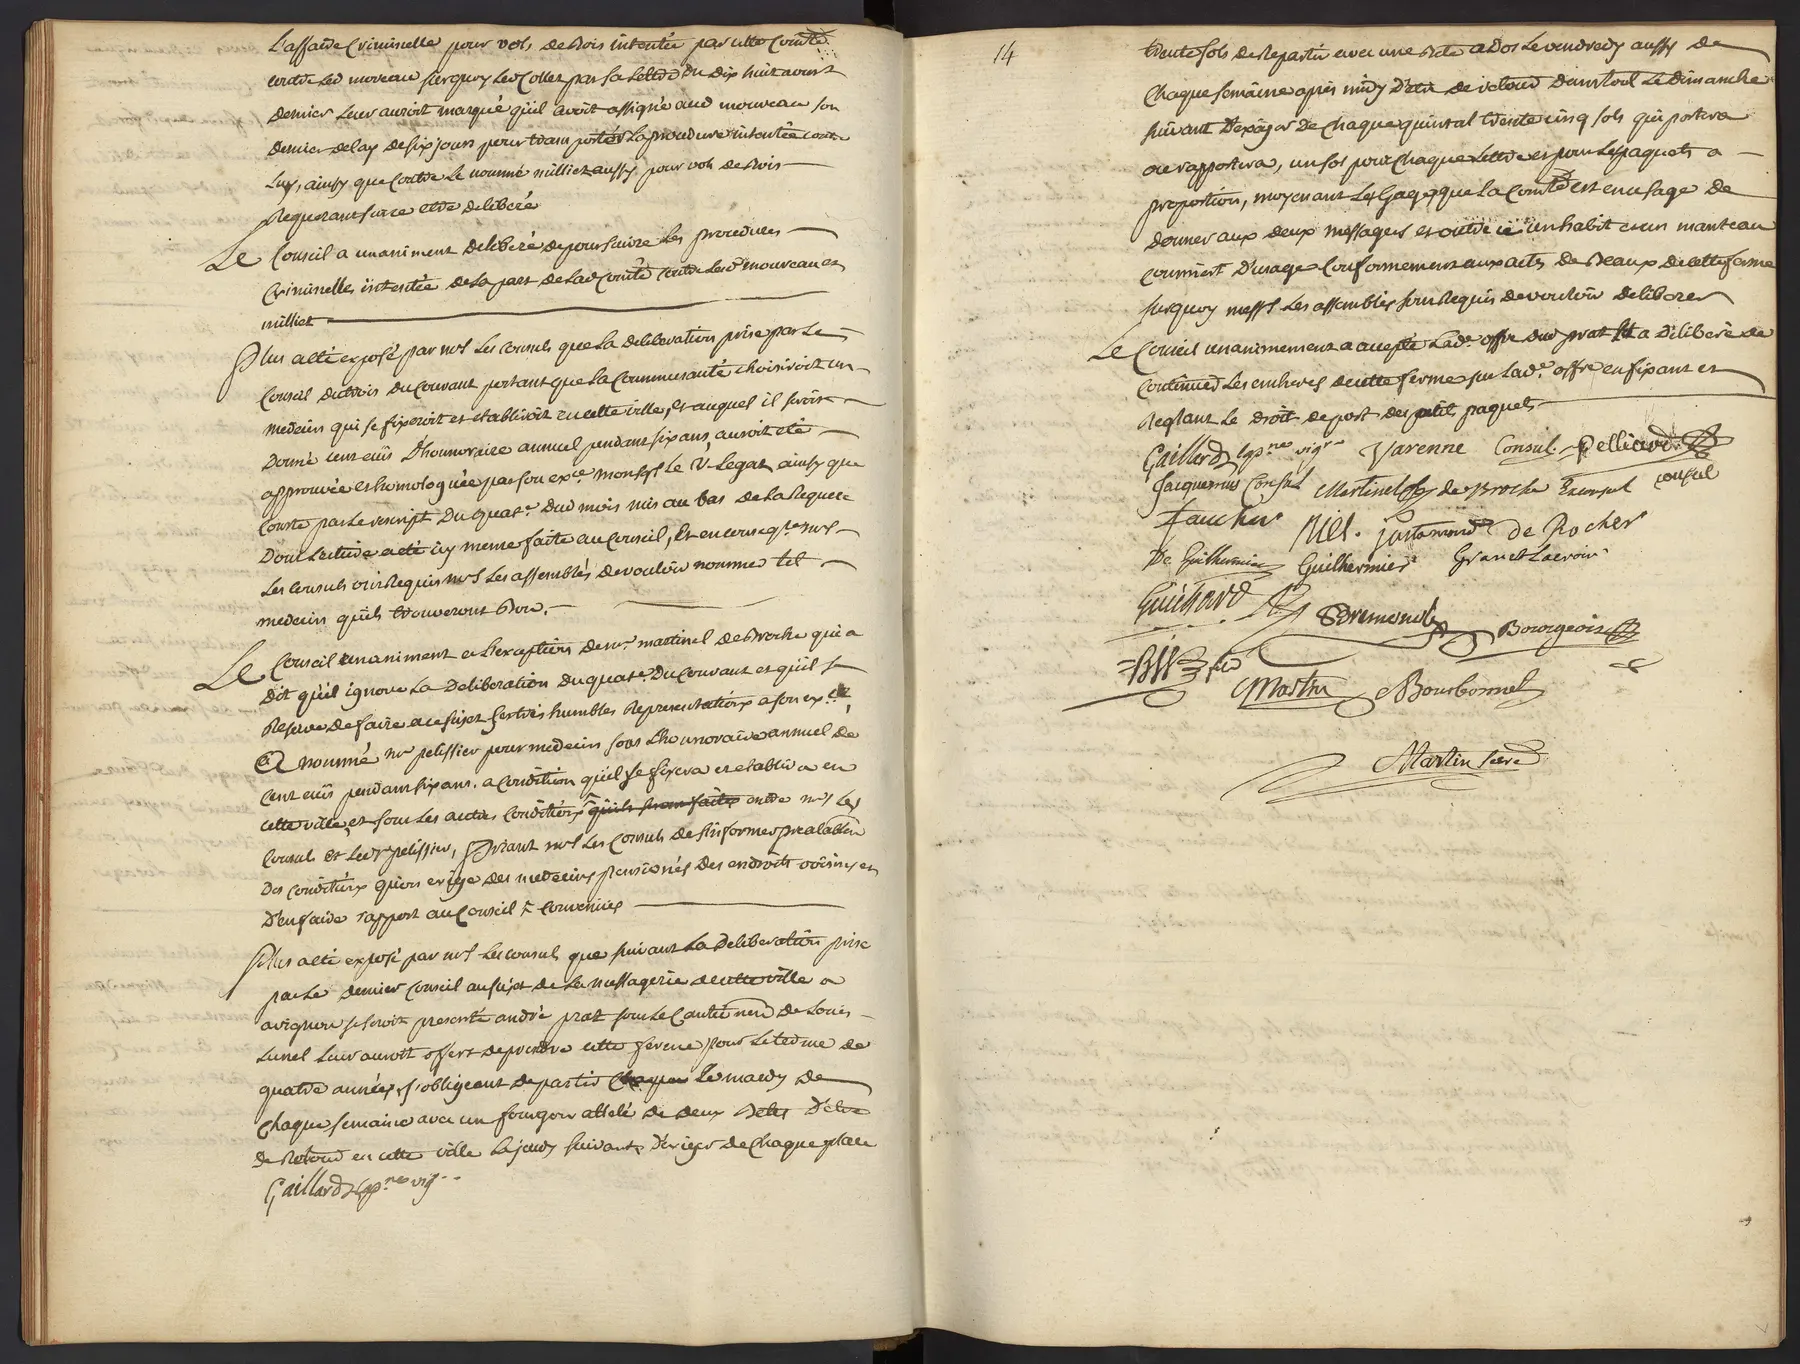 L'affaire Criminelle pour vols de Bois intentée par cette Com̃té
contre led moureau surquoy led Collet par sa Lettre du dix huit avoust
dernier Leur auroit marqué qu'il avoit assigné aud moureau son
dernier delay de six jours pour voir porter La procedure intentée contre
Luy, ainsy que Contre Le nommé milliet aussy pour vols de Bois
Requerant sur ce etre deliberé
Le Conseil a unaniment deliberé de poursuivre Les procedures
Criminelles intentée de la part de Lad Com̃té contre Lesd moureau et
milliet
Plus a eté exposé par mrs Les Consuls que La deliberation prise par Le
Conseil du trois du Courant portant que La Communauté choisiroit un
medecin qui se fixeroit et etabliroit en cette ville, Et auquel il seroit
Donné cent ecûs D'honnoraire annuel pendant six ans, auroit eté
approuvée et homologuée par son exce monsgr Le V. Legat, ainsy que
Conste par Le rescript du quatre Dud mois mis au bas de La Requete
Dont Lecture a eté icy meme faite au Conseil, Et en conseqce mrs
Les Consuls ont Requis mrs Les assemblés de vouloir nommer tel
medecin qu'ils trouveront Bon.
Le Conseil unaniment a L'exception de mr. martinel de Broche qui a
Dit qu'il ignore La Deliberation du quatre du Courant et qu'il se
Reserve de faire a ce sujet ses très humbles Representations a son exce,
A nommé mr pelissier pour medecin sous L'honnoraire annuel de
Cent ecûs pendant six ans, a Condition qu'il se fixera et etablira en
cette ville, et sous Les autres Conditions qu'ils seront faites entre mrs Les
Consuls Et Led sr pelissier, Priant mrs Les Consuls de s'informer prealablem
Des Conditions qu'on exige des medecins pensionés des endroits voisins et
D'en faire rapport au Conseil convenües
Plus a eté exposé par mrs Les Consuls que suivant La deliberation prise
par Le dernier Conseil au sujet de La messagerie de cette ville a
avignon se seroit presenté andré prat sous Le Cautionem̃t de Louis
Lunel Leur auroit offert de prendre cette ferme pour Le terme de
quatre années, s'obligeant de partir Chaque Le mardy de
Chaque semaine avec un fourgon attelé de deux Betes D'etre
de Retour en cette ville Le jeudy suivant, D'exiger de Chaque place
Gaillard Cap.nes vig..
14
trente sols de Repartir avec une Bete a dos Le vendredy aussy de
Chaque semaine après midy D'etre de retour dans tout Le dimanche
suivant D'exiger de Chaque quintal trente cinq sols qu'il portera
ou rapportera, un sol pour Chaque Lettre et pour Les paquets a
proportion, moyenant Les Gages que La Com̃té est en usage de
donner aux deux messagers et outre ce un habit et un manteau
comme d'usage Conformement aux acts de Beaux de cette ferme
surquoy messrs Les assemblés sont Requis de vouloir deliberer
Le Conseil unanimement a accepté Lad.e offre dud prat Et a Deliberé de
Continuer Les encheres de cette ferme sur Lad.e offre en fixant et
Reglant Le droit de port des petits paquets
Gaillard Cap.ne vigr Varenne Consul Pelliard
Jacquemus Consul Martinel de Broche Exconsul consul
Faucher Niel. Jastamond de Rocher
De Guilhermier Guilhermier Granet Lacroix
Guichard Dremond Bourgeois
Martin Bourbonnel
Martin secre